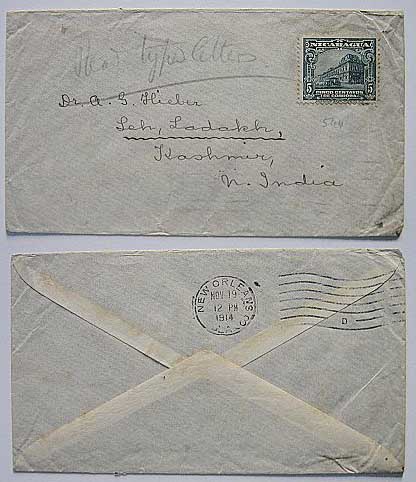 typed letters
NICARAGUA
5 CINCO CENTAVOS 5
DE CORDOBA
Dr. A. G. Hieber
Leh, Ladakh,
Kashmir,
N. India
NEW ORLEANS
NOV 19
12 PM
1914
LA.
D